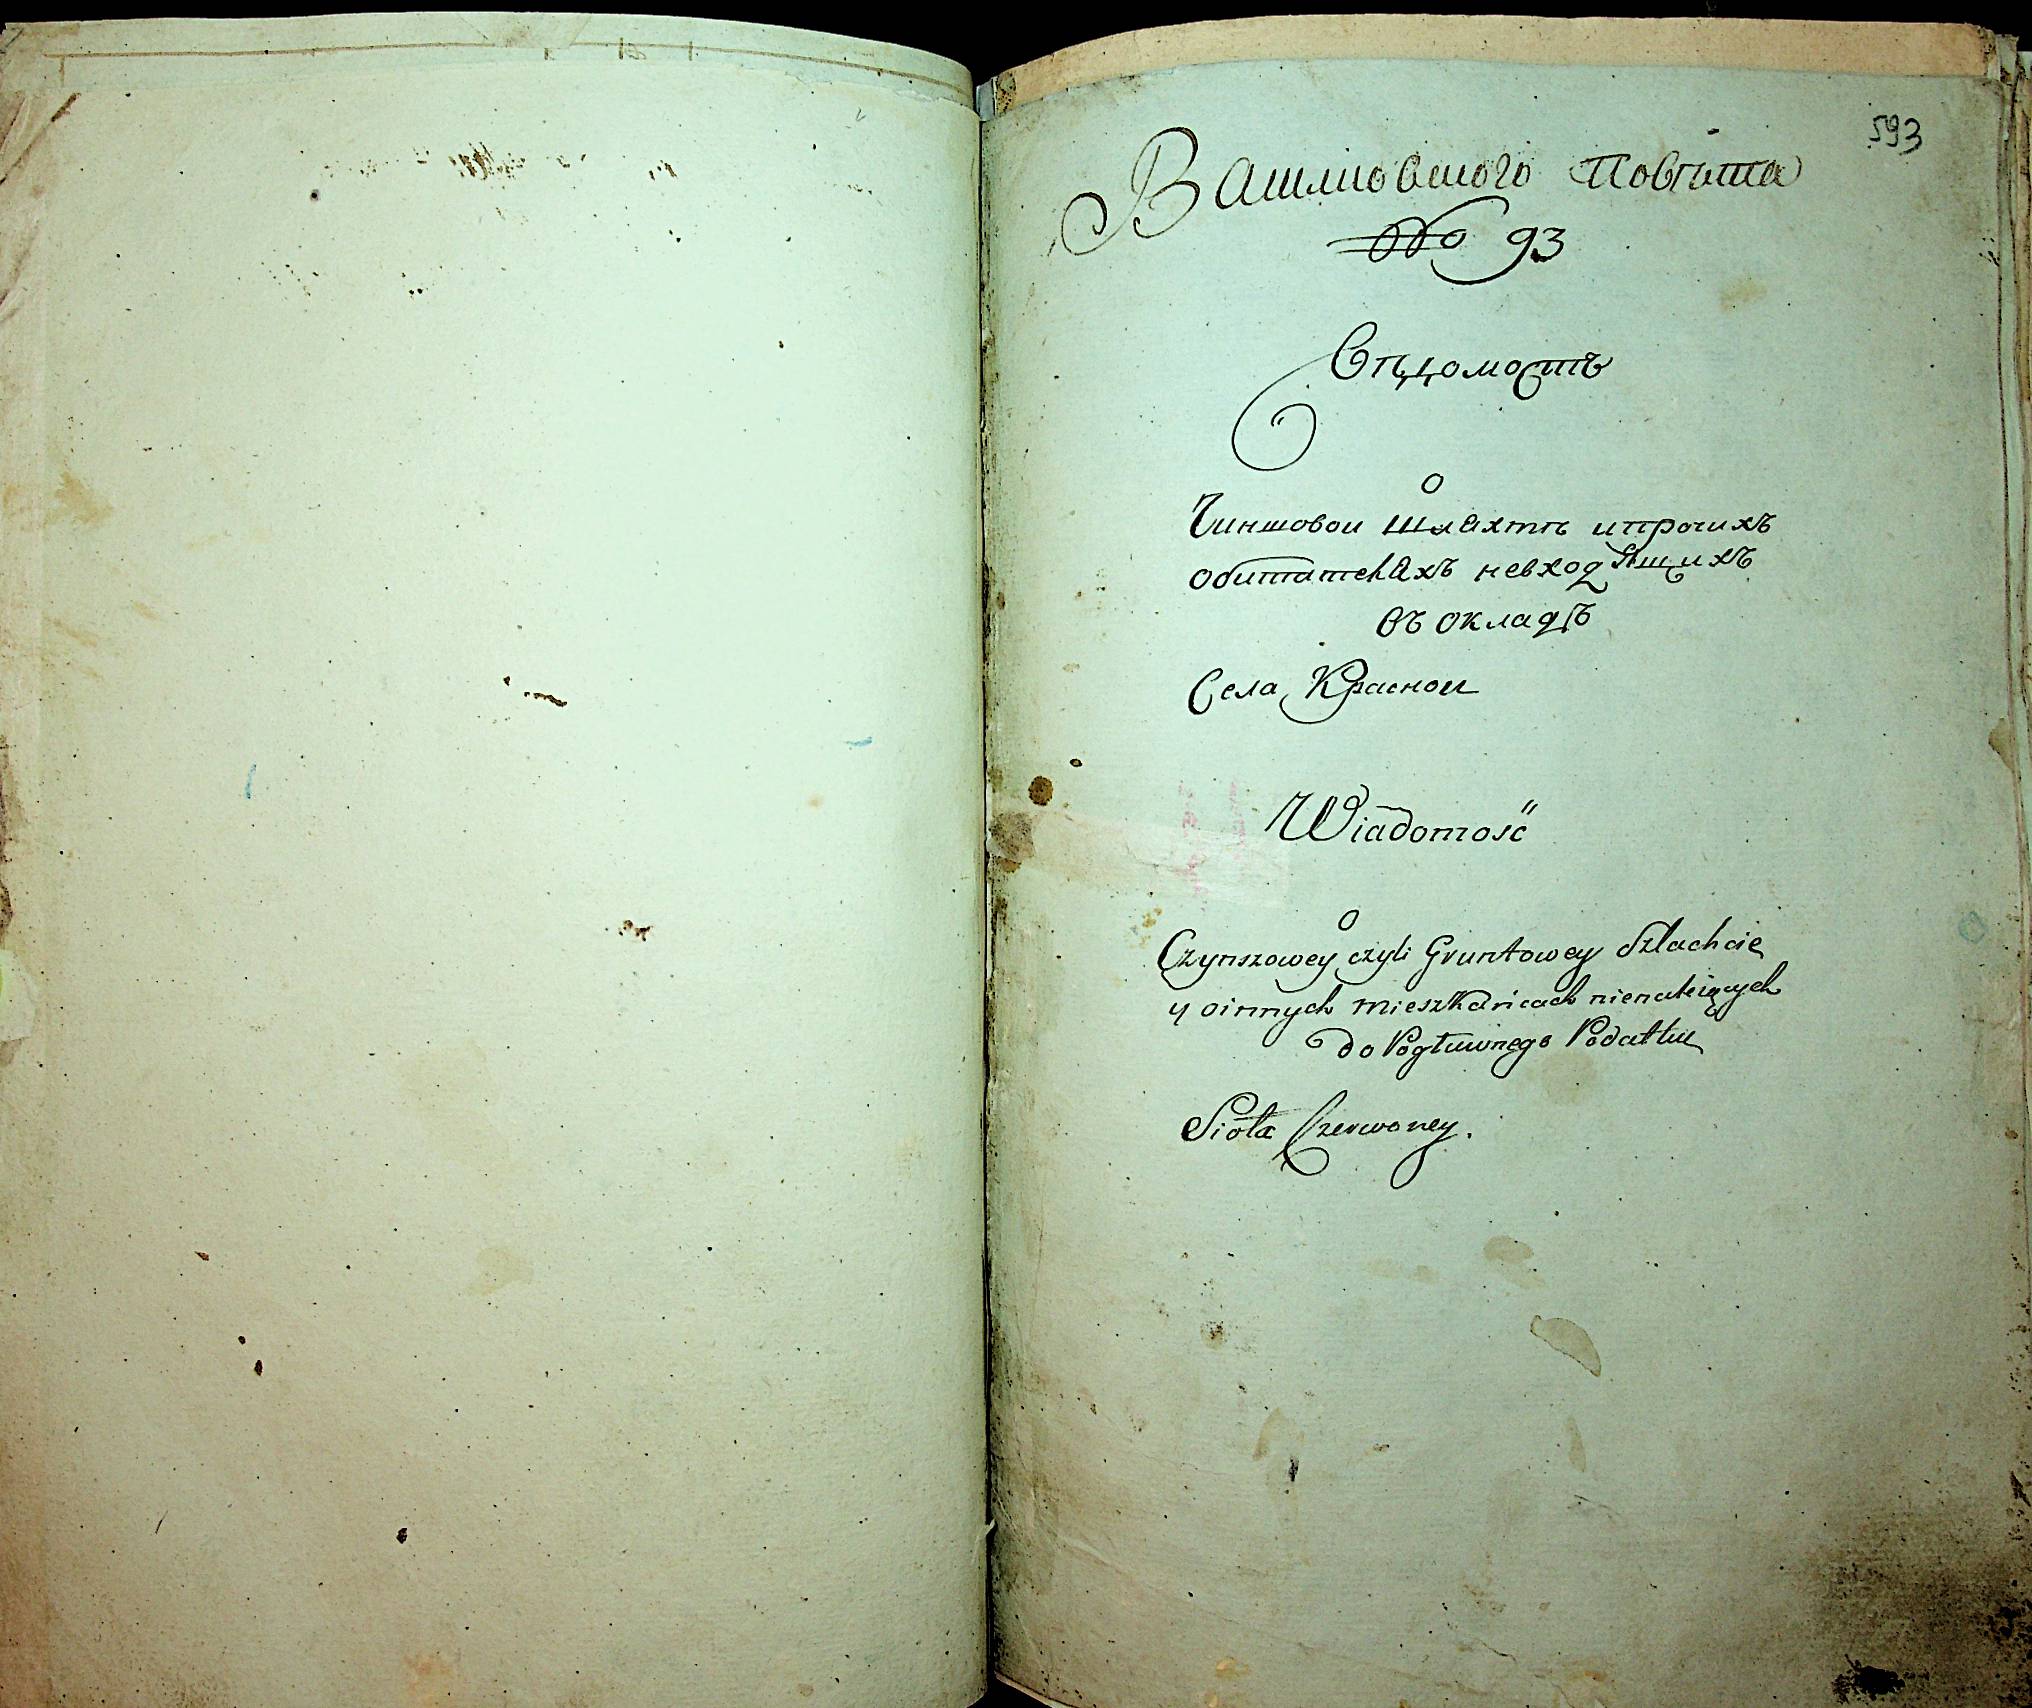 593
Вашлиовского Повѣта
№ 93
Вѣдомость
о
Чиншовои шляхтѣ ипрочихъ
обитателахъ невходящихъ
въ окладъ
Села Краснои
Wiadomość
O
Czynszowey czyli Gruntowey Szlachcie
y oinnych mieszkańcach nienależących
do Pogłuwnego Podatku
Sioła Czerwoney.